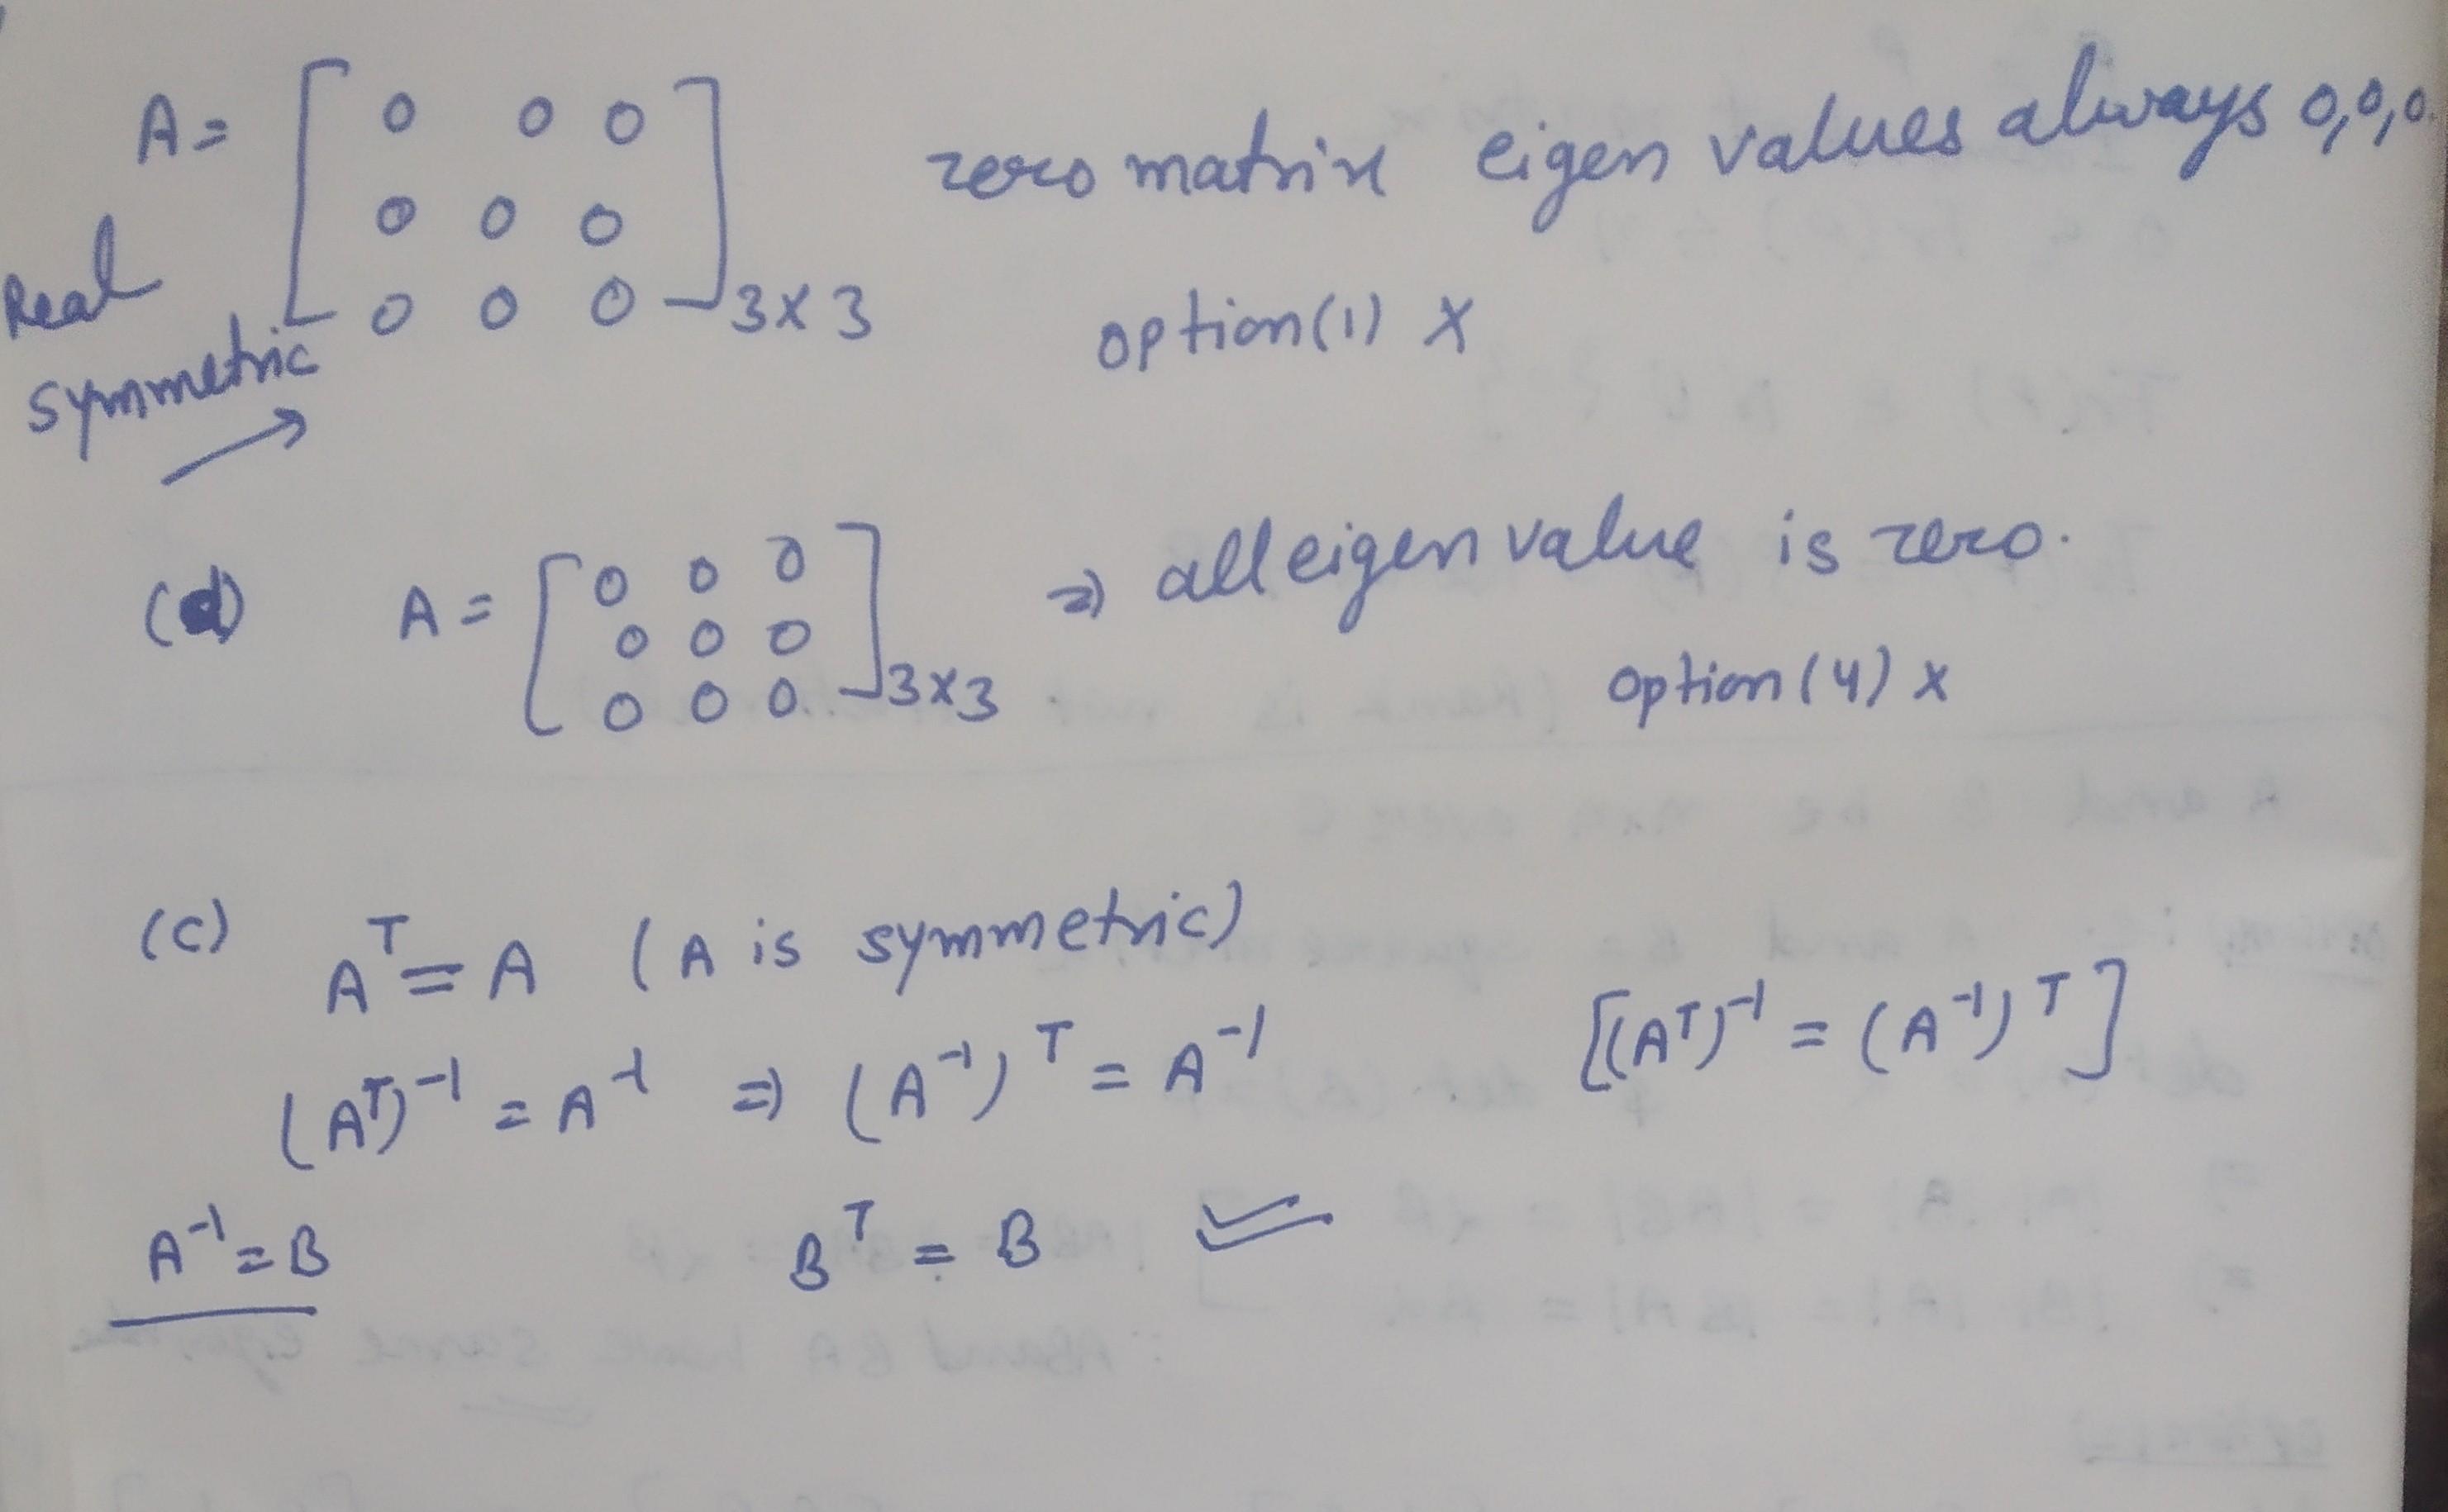 A = [ 0 0 0
0 0 0
0 0 0 ]3×3
zero matrix eigen values always 0,0,0.
Real
symmetric →
option(1) ×
(d) A = [ 0 0 0
0 0 0
0 0 0 ]3×3 ⇒ all eigen value is zero.
option(4) ×
(c) A^T = A (A is symmetric)
(A^T)^-1 = A^-1 ⇒ (A^-1)^T = A^-1 [(A^T)^-1 = (A^-1)^T]
A^-1 = B B^T = B ✓